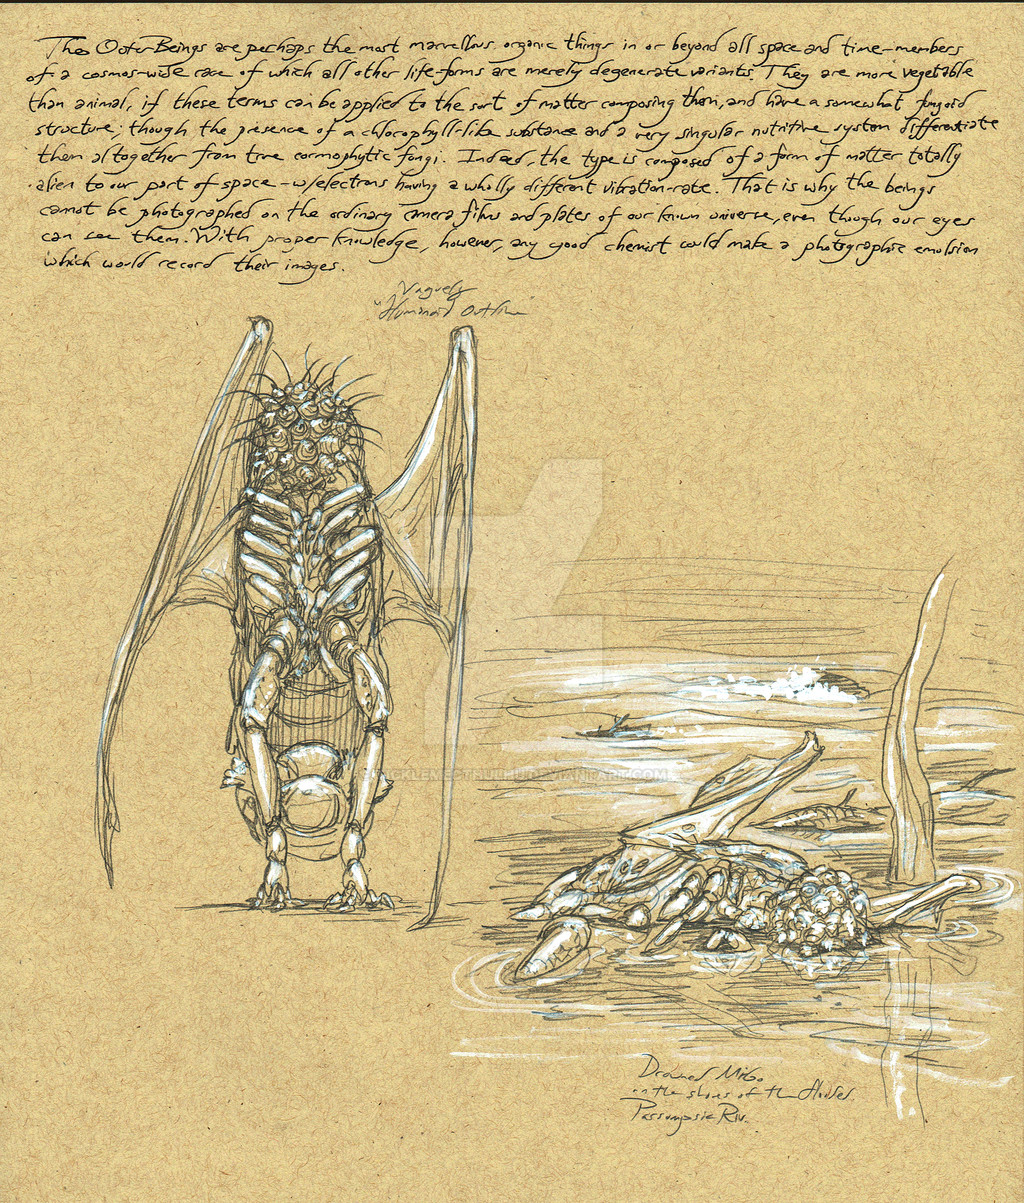 The Outer Beings are perhaps the most marvellous organic things in or beyond all space and time-members
of a cosmos-wide race of which all other life-forms are merely degenerate variants. They are more vegetable
than animal, if these terms can be applied to the sort of matter composing them, and have a somewhat fungoid
structure; though the presence of a chlorophyll-like substance and a very singular nutritive system differentiate
them altogether from true cormophytic fungi. Indeed, the type is composed of a form of matter totally
alien to our part of space - w/electrons having a wholly different vibration-rate. That is why the beings
cannot be photographed on the ordinary camera films and plates of our known universe, even though our eyes
can see them. With proper knowledge, however, any good chemist could make a photographic emulsion
which would record their images.
Vaguely
"Humanoid Outline
Drowned MiGo
on the shores of the flooded
Passumpsic Riv.
DEVIANTART.COM